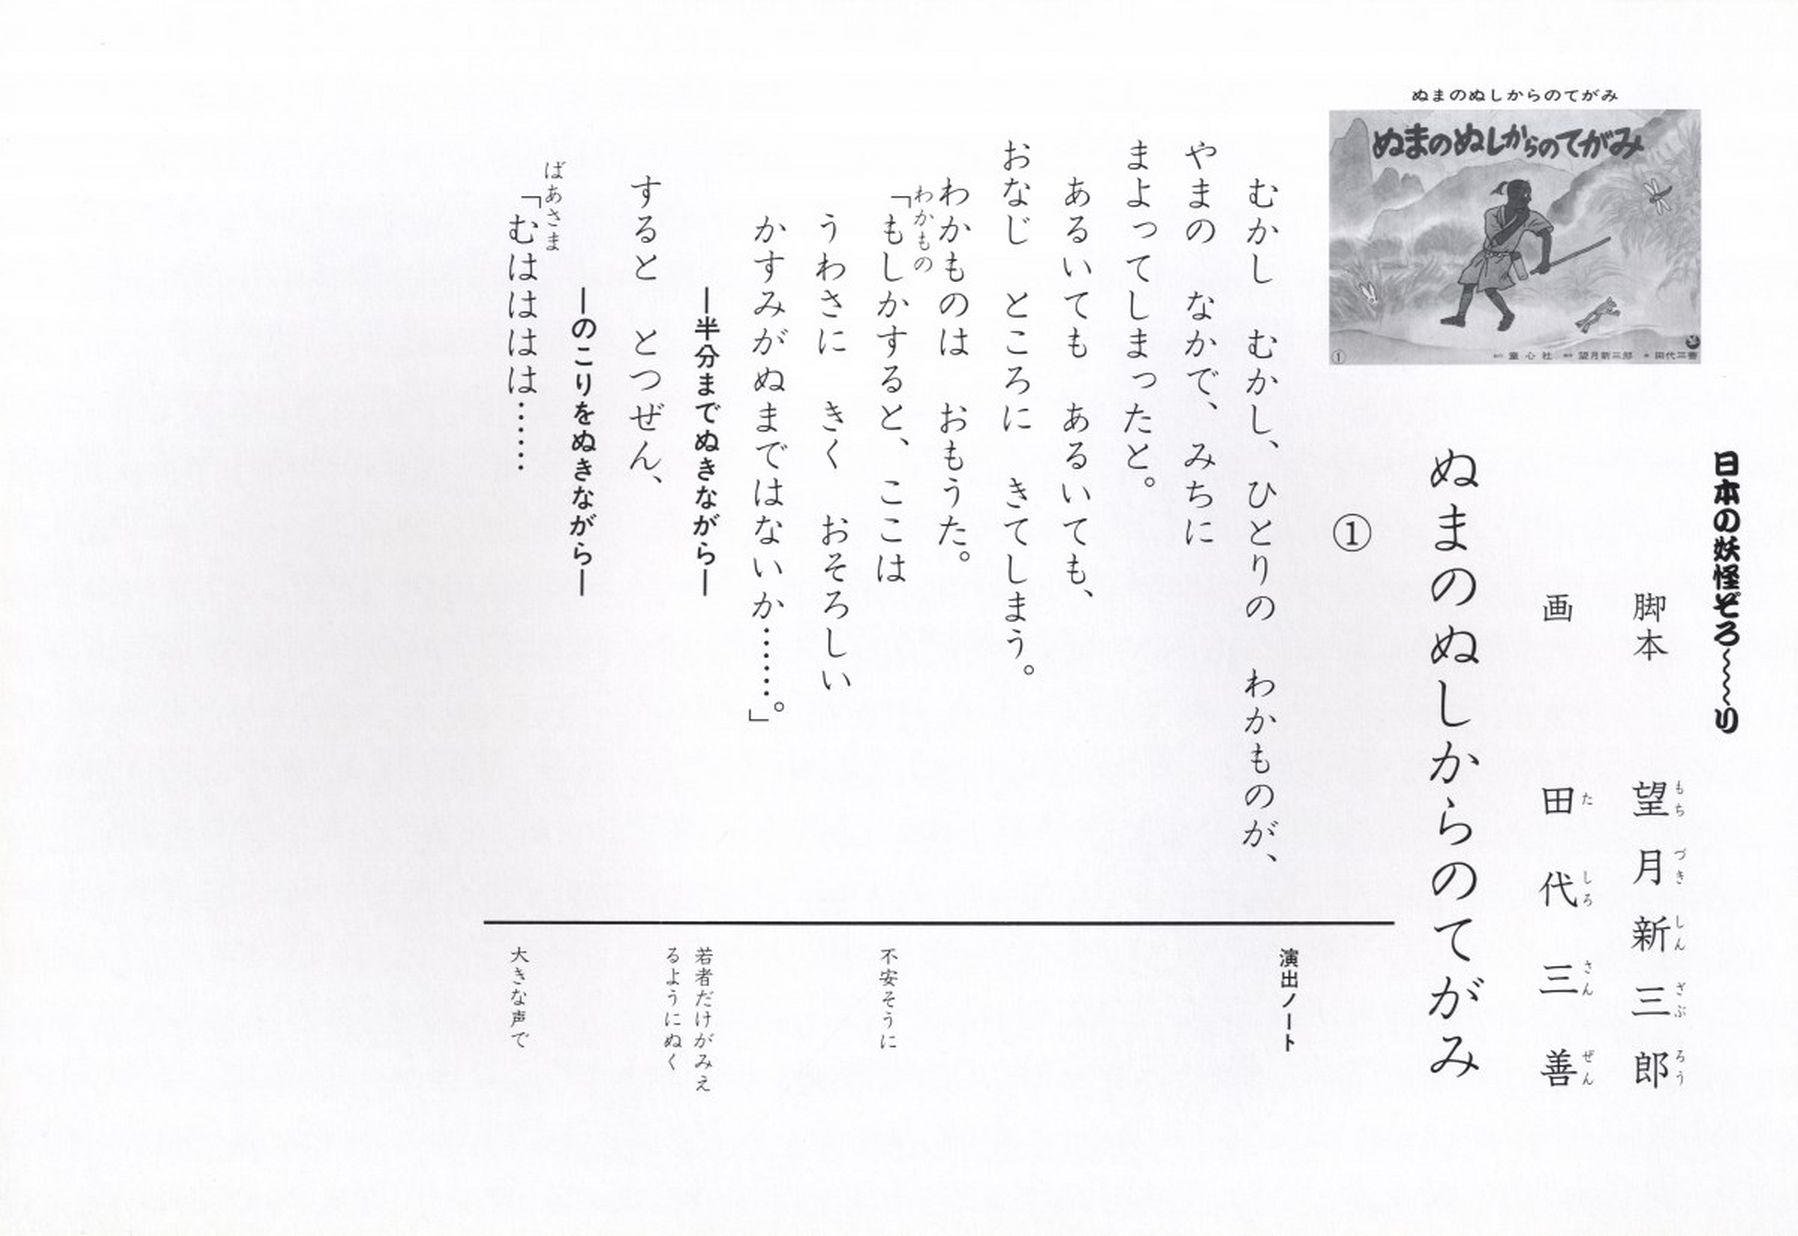 ぬまのぬしからのてがみ
ぬまのぬしからのてがみ
① 童心社 望月新三郎 田代三善
日本の妖怪ぞろ～～～り
脚本 望月新三郎
もち づき しん ざぶ ろう
画 田代三善
た しろ さん ぜん
ぬまのぬしからのてがみ
①
むかし むかし、ひとりの わかものが、
やまの なかで、みちに
まよってしまったと。
あるいても あるいても、
おなじ ところに きてしまう。
わかものは おもうた。
わかもの
「もしかすると、ここは
うわさに きく おそろしい
かすみがぬまではないか……。」
―半分までぬきながら―
すると とつぜん、
―のこりをぬきながら―
ばあさま
「むはははは……
演出ノート
不安そうに
若者だけがみえ
るようにぬく
大きな声で